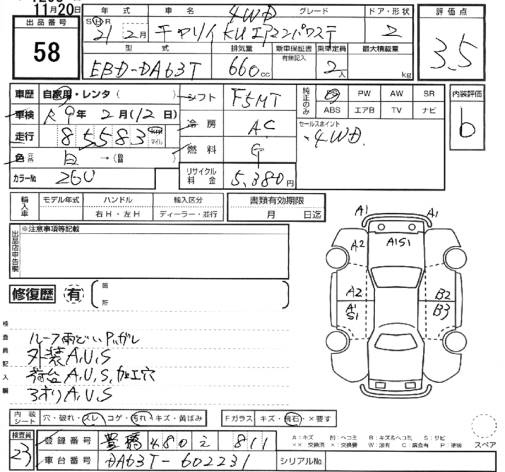 11月20日
出品番号
58
年式 車名 グレード ドア・形状
S H R 21 2月 キャリイKU エアコンパワステ 4WD 2
評価点
3.5
型式 排気量 新車保証書 有無記入 乗車定員 最大積載量
EBD-DA63T 660cc 2人 kg
車歴 自家用・レンタ( )
車検 R 9年2月(12日)
走行 85583 km マイル
色 白 →( )
カラーNo. 26U
シフト F5MT
冷房 AC
燃料 G
リサイクル料金 5,380円
純正のみ PS PW AW SR
ABS エアB TV ナビ
セールスポイント
4WD.
内装評価
b
輸入車 モデル年式 ハンドル 輸入区分
右H・左H ディーラー・並行
書類有効期限
月 日迄
出品店申告欄
※注意事項等記載
修復歴 有
箇所
検査員記入欄
ルーフ雨どいPハガレ
外装A,U,S
荷台A,U,S,加工穴
3方リA,U,S
A1 A1
A2 A1S1
A2 B2
A1 S1 B3
内装シート 穴・破れ・スレ・コゲ・汚れ・キズ・黄ばみ
Fガラス キズ・飛石・×要す
スペア
検査員
23
登録番号 豊橋 480 え 811
車台番号 DA63T-602231
シリアルNo.
A:キズ